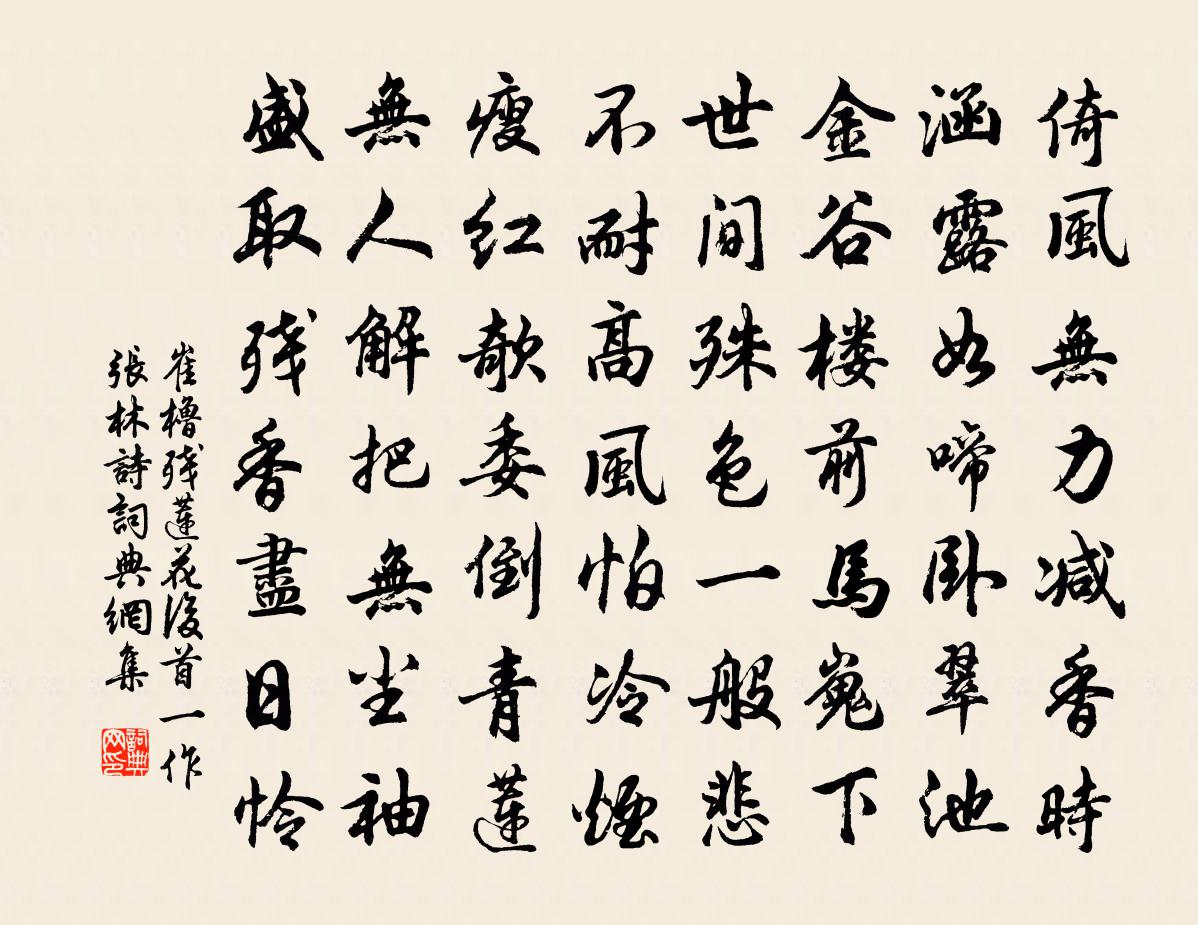 倚風無力減香時
涵露如啼卧翠池
金谷楼前馬嵬下
世间殊色一般悲
不耐高風怕冷煙
瘦红欹委倒青蓮
無人解把無尘袖
盛取残香盡日怜
崔櫓残蓮花後首一作
張林詩詞典網集
詞典网印